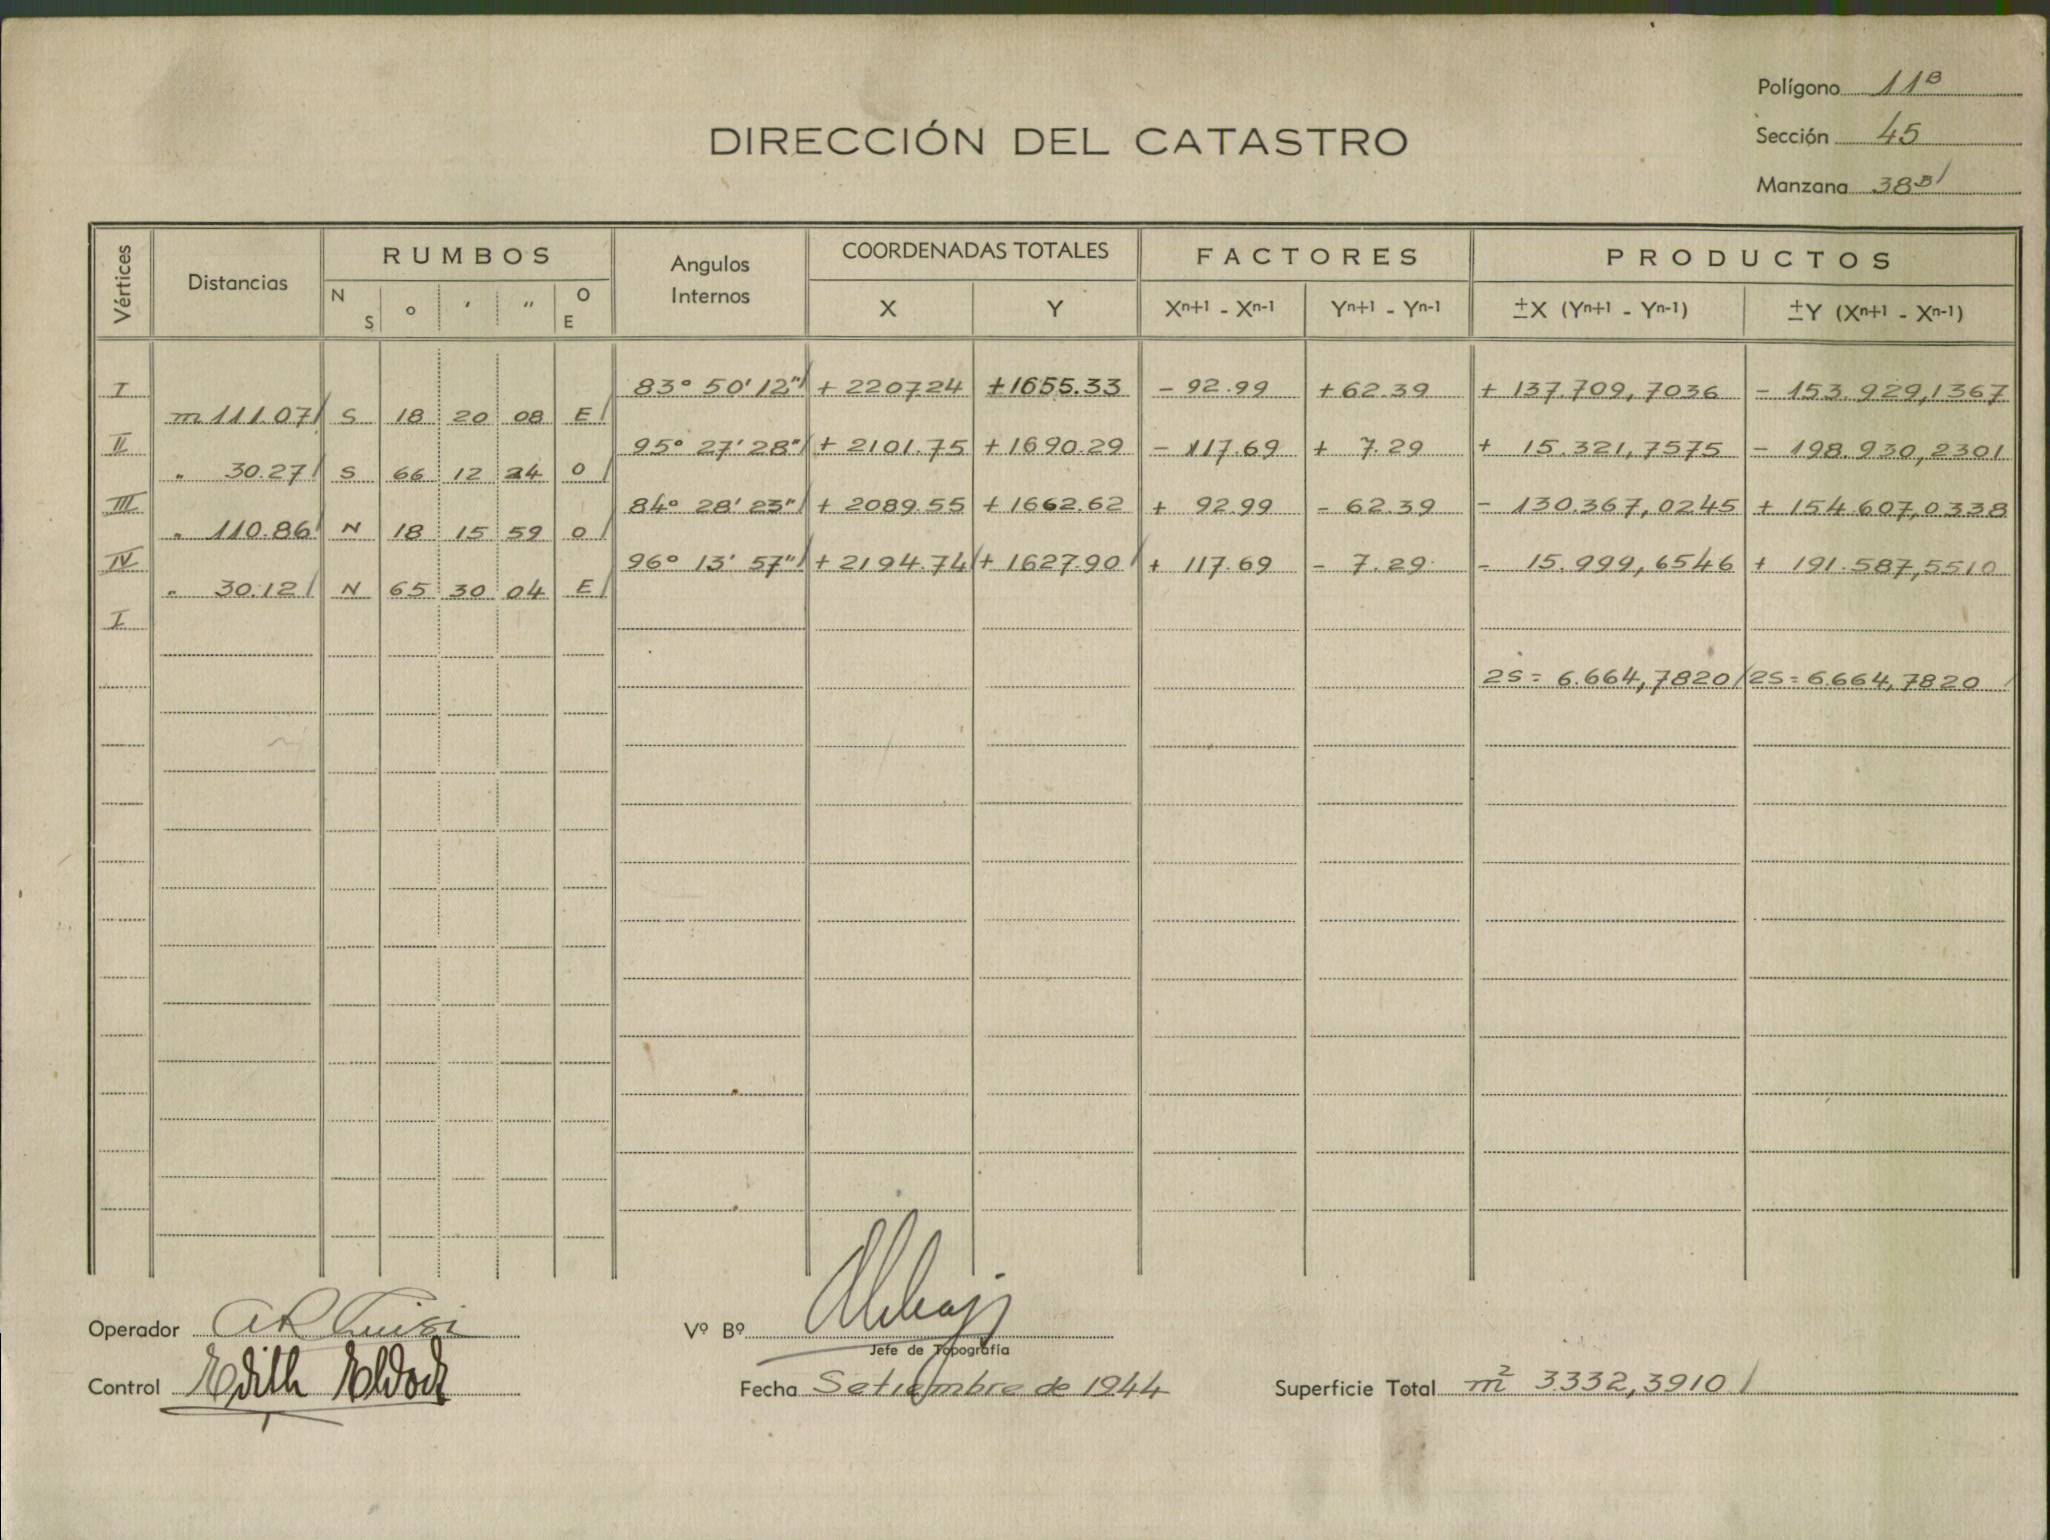 Polígono 11B
DIRECCIÓN DEL CATASTRO
Sección 45
Manzana 38B
Vértices Distancias RUMBOS Angulos Internos COORDENADAS TOTALES FACTORES PRODUCTOS
N S ° ' " O E X Y Xn+1 - Xn-1 Yn+1 - Yn-1 ±X (Yn+1 - Yn-1) ±Y (Xn+1 - Xn-1)
I 83° 50' 12" + 2207.24 +1655.33 - 92.99 +62.39 + 137.709,7036 - 153.929,1367
m 111.07 S 18 20 08 E
II 95° 27' 28" + 2101.75 +1690.29 - 117.69 + 7.29 + 15.321,7575 - 198.930,2301
" 30.27 S 66 12 24 O
III 84° 28' 23" + 2089.55 +1662.62 + 92.99 - 62.39 - 130.367,0245 + 154.607,0338
" 110.86 N 18 15 59 O
IV 96° 13' 57" + 2194.74 + 1627.90 + 117.69 - 7.29 - 15.999,6546 + 191.587,5510
" 30.12 N 65 30 04 E
I
2S = 6.664,7820 2S = 6.664,7820
Operador
Vº Bº
Jefe de Topografía
Control Edith
Fecha Setiembre de 1944
Superficie Total m² 3.332,3910